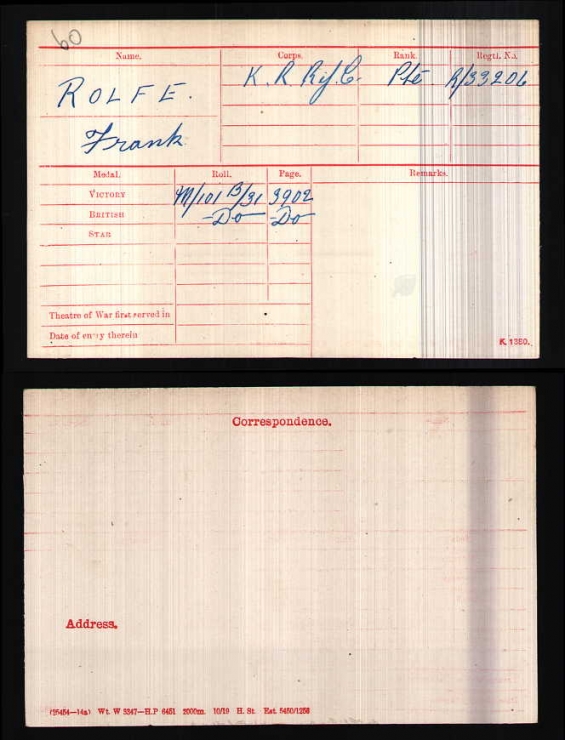 60
Name. Corps. Rank. Regtl. No.
ROLFE. K. R. Rif. C. Pte R/33206
Frank
Medal. Roll. Page. Remarks.
VICTORY M/101 B/31 3902
BRITISH -Do- -Do-
STAR
Theatre of War first served in
Date of entry therein
K. 1380.
Correspondence.
Address.
(16484—14a) Wt. W 5347—H.P 6451 2000m. 10/19 H. St. Est. 5450/1256